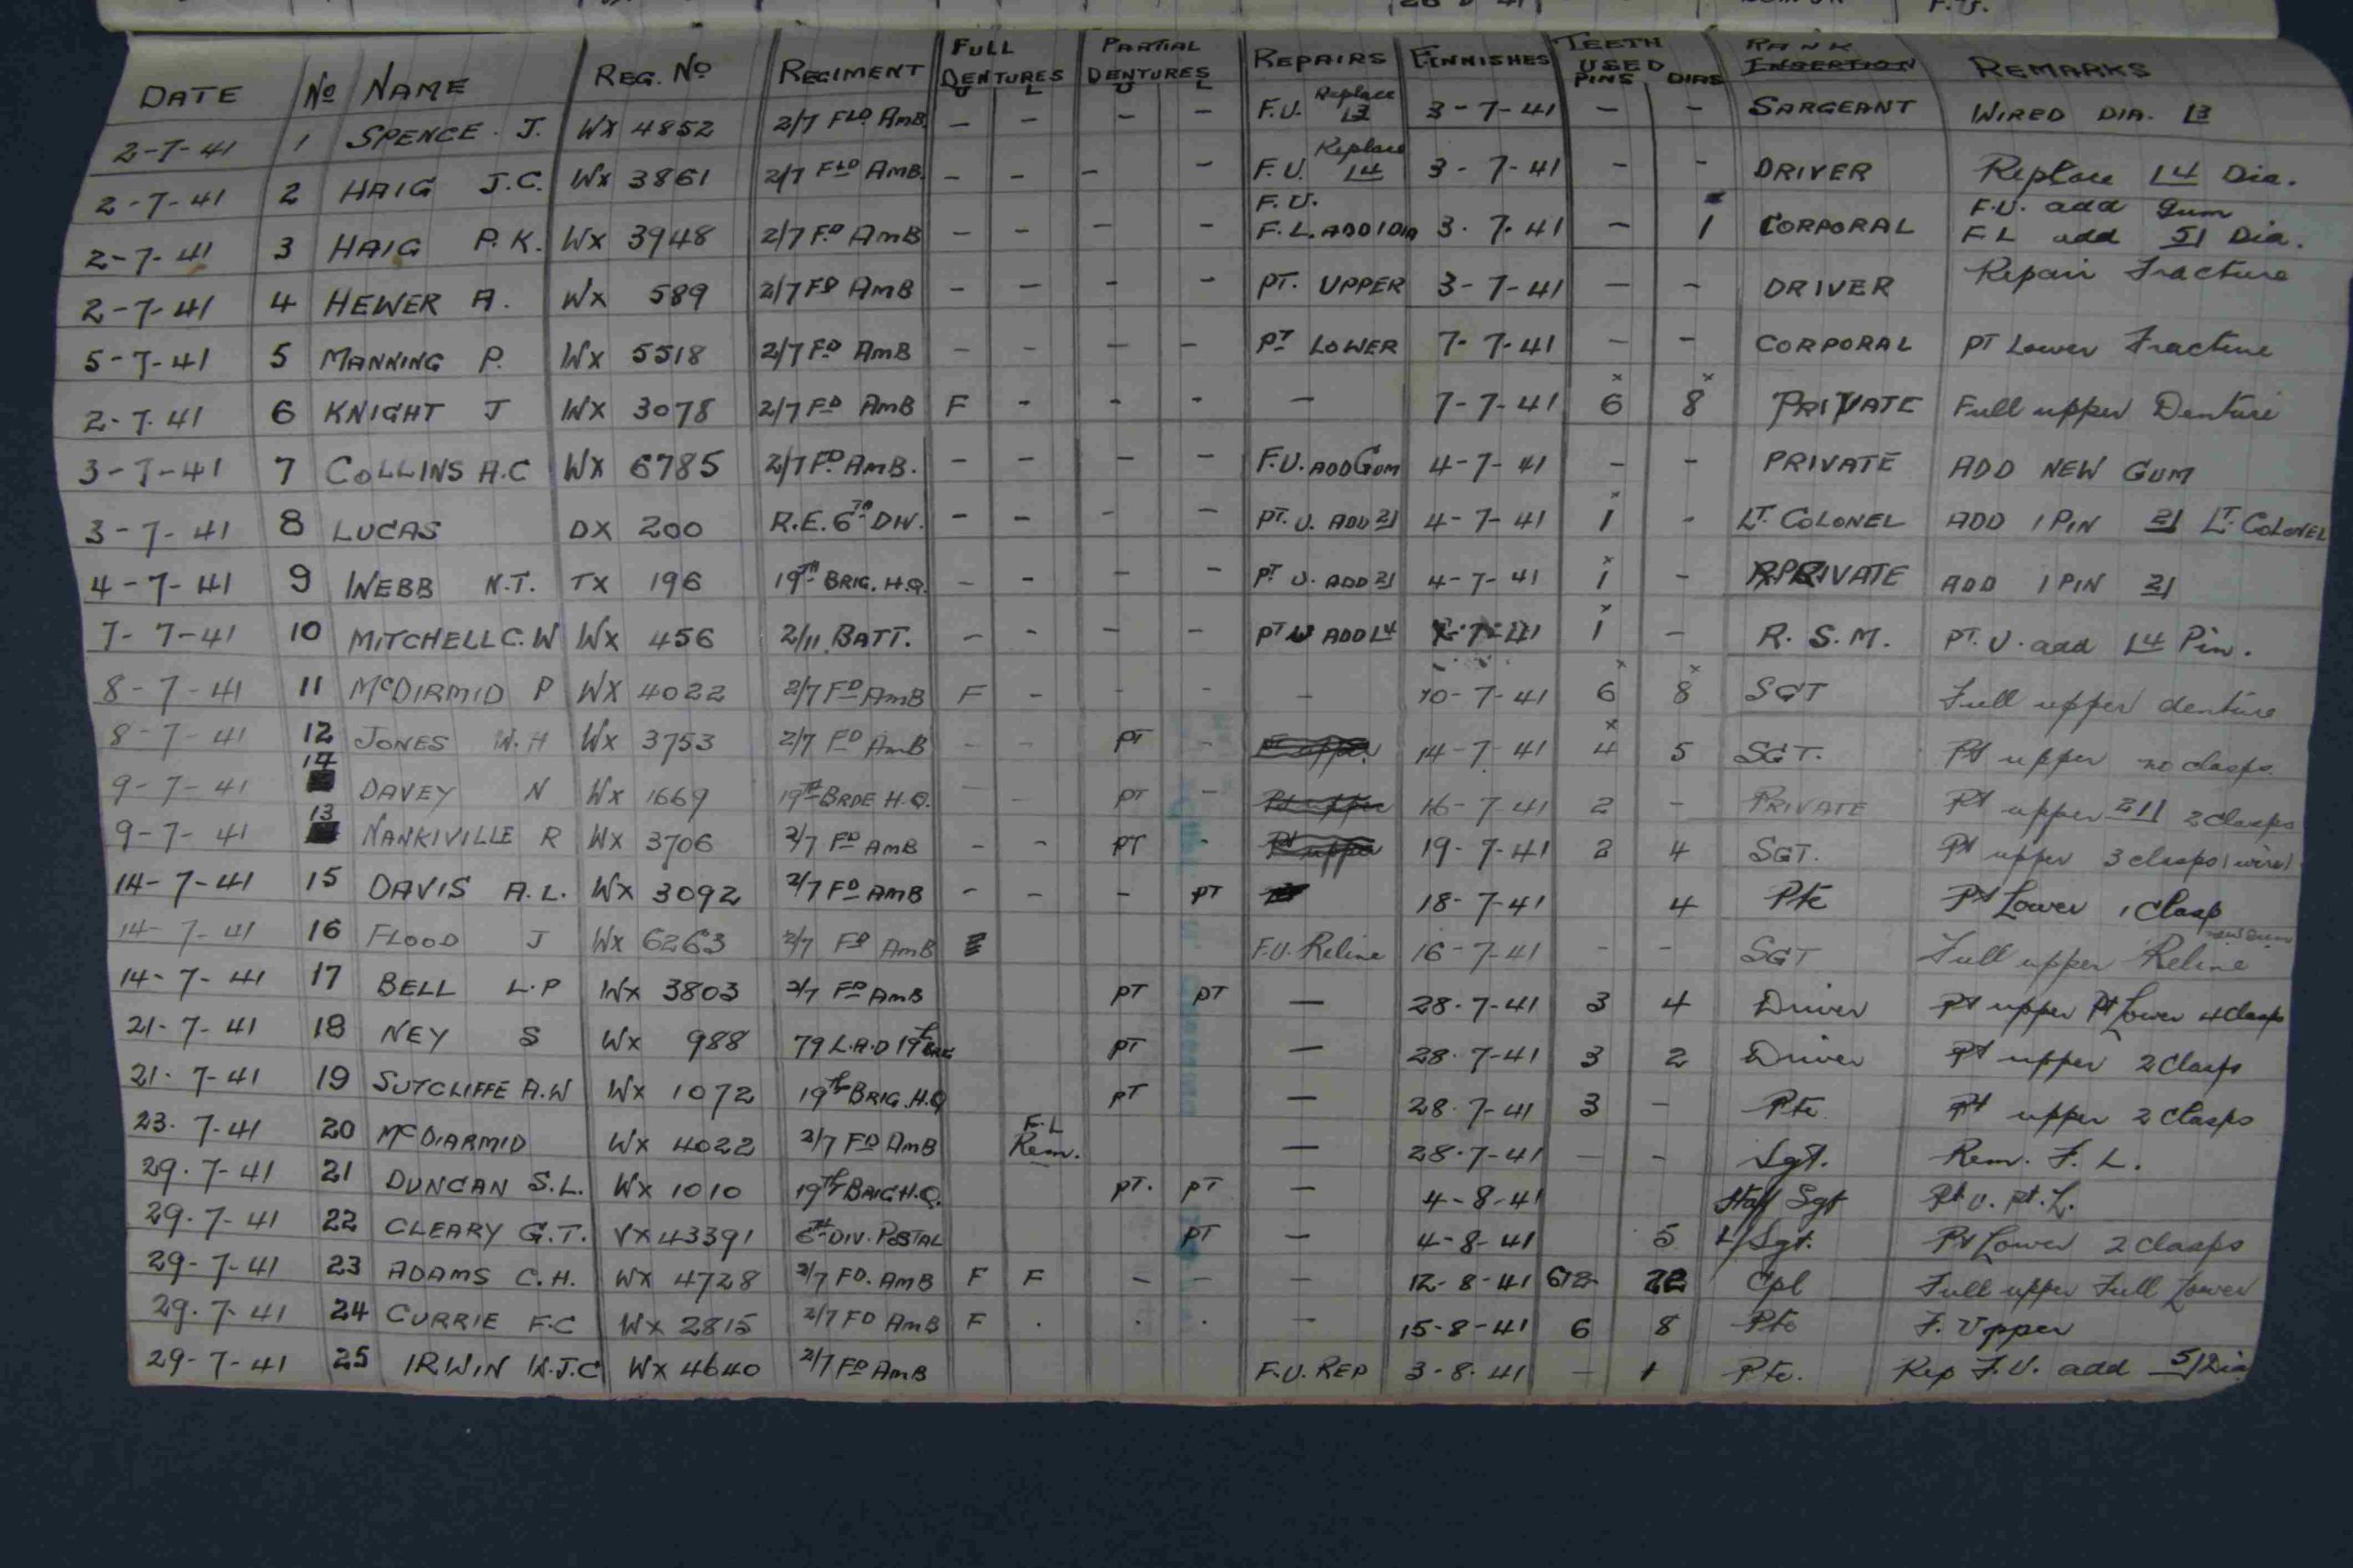 FULL PARTIAL TEETH RANK
DATE No NAME REG. No REGIMENT DENTURES DENTURES REPAIRS FINNISHES USED INSERTION REMARKS
U L U L PINS DIAS
2-7-41 1 SPENCE . J. WX 4852 2/7 FLD. AMB. - - - - F.U. Replace L3 3-7-41 - - SARGEANT WIRED DIA. L3
2-7-41 2 HAIG J.C. WX 3861 2/7 FLD AMB. - - - - F.U. Replace L4 3-7-41 - - DRIVER Replace L4 Dia.
2-7-41 3 HAIG P.K. WX 3948 2/7 FD AMB - - - - F.U. F.L. ADD 1 DIA 3.7.41 - 1 CORPORAL F.U. add gum F L add 5| Dia.
2-7-41 4 HEWER A. WX 589 2/7 FD AMB - - - - PT. UPPER 3-7-41 - - DRIVER Repair Fracture
5-7-41 5 MANNING P. WX 5518 2/7 FD AMB - - - - PT LOWER 7-7-41 - - CORPORAL PT Lower Fracture
2-7.41 6 KNIGHT J WX 3078 2/7 FD AMB F - - - - 7-7-41 x6 x8 PRIVATE Full upper Denture
3-7-41 7 COLLINS A.C WX 6785 2/7 FD AMB. - - - - F.U. ADD GUM 4-7-41 - - PRIVATE ADD NEW GUM
3-7-41 8 LUCAS DX 200 R.E. 6TH DIV. - - - - PT. U. ADD 2| 4-7-41 x1 - LT. COLONEL ADD 1 PIN 2| LT. COLONEL
4-7-41 9 WEBB N.T. TX 196 19TH BRIG. H.Q. - - - - PT U. ADD 2| 4-7-41 x1 - PRIVATE ADD 1 PIN 2|
7-7-41 10 MITCHELL C.W WX 456 2/11 BATT. - - - - PT U ADD L4 x1 - R.S.M. PT. U. add L4 Pin.
8-7-41 11 McDIRMID P WX 4022 2/7 FD AMB F - - - - 10-7-41 x6 x8 SGT Full upper denture
8-7-41 12 JONES W.H WX 3753 2/7 FD AMB - - PT - Pt upper 14-7-41 x4 5 SGT. Pt upper no clasps
9-7-41 14 DAVEY N WX 1669 19TH BRDE H.Q. - - PT - Pt upper 16-7-41 2 - PRIVATE Pt upper 2 clasps
9-7-41 13 NANKIVILLE R WX 3706 2/7 FD AMB - - PT - Pt upper 19-7-41 2 4 SGT. Pt upper 3 clasps 1 wire
14-7-41 15 DAVIS A.L. WX 3092 2/7 FD AMB - - - PT 18-7-41 4 Pte Pt Lower 1 Clasp
14-7-41 16 FLOOD J WX 6263 2/7 FD AMB F.U. Reline 16-7-41 - - SGT Full upper Reline
14-7-41 17 BELL L.P WX 3803 2/7 FD AMB PT PT - 28.7-41 3 4 Driver Pt upper Pt Lower 4 Clasps
21-7-41 18 NEY S WX 988 79 L.A.D 19th PT - 28.7-41 3 2 Driver Pt upper 2 Clasps
21-7-41 19 SUTCLIFFE A.W WX 1072 19th BRIG. H.Q PT - 28.7-41 3 - Pte. Pt upper 2 Clasps
23.7-41 20 McDIARMID WX 4022 2/7 FD AMB F.L Rem. - 28.7-41 - - Sgt. Rem. F. L.
29.7-41 21 DUNCAN S.L. WX 1010 19th BRIG H.Q. PT. PT - 4-8-41 Staff Sgt Pt U. Pt. L.
29.7-41 22 CLEARY G.T. VX 43391 6TH DIV. POSTAL PT - 4-8-41 5 L/Sgt. Pt Lower 2 clasps
29-7-41 23 ADAMS C.H. WX 4728 2/7 FD. AMB F F - - - 12-8-41 Cpl Full upper Full Lower
29.7-41 24 CURRIE F.C WX 2815 2/7 FD AMB F . . . - 15-8-41 6 8 Pte F. Upper
29-7-41 25 IRWIN W.J.C WX 4640 2/7 FD AMB F.U. REP 3-8.41 - 1 Pte. Rep F.U. add 5| Dia